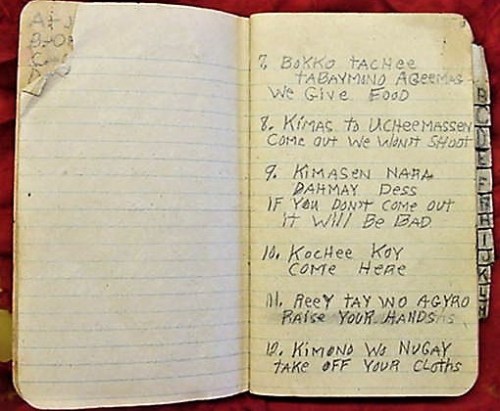 A+J
7. BOKKO TACHEE
TABAYMONO AGEEMAS
WE GIVE FOOD
8. KIMAS TO UCHEEMASSEN
COME OUT WE WON'T SHOOT
9. KIMASEN NARA
DAHMAY DESS
IF YOU DON'T COME OUT
IT WILL BE BAD
10. KOCHEE KOY
COME HERE
11. REEY TAY WO AGYRO
RAISE YOUR HANDS
12. KIMONO WO NUGAY
TAKE OFF YOUR CLOTHS